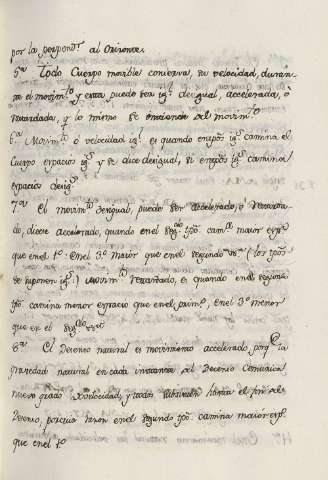 por la perpend.^r al Orizonte.
5.ª Todo Cuerpo movible conserva, su velocidad, duran
te el movim.^to y esta puede ser ig.^l desigual, acelerada, ò
Retardada, y lo mismo se entiende del movim.^to
6.ª Movim.^to ò velocidad ig.^l es quando en tpōs ig.^s camina el
Cuerpo espacios ig.^s y se dice desigual, si en tpōs ig.^s camina
espacios desig.^s
7.ª El movim.^to desigual, puede ser acelerado, ò Retarda
do, dicese acelerado, quando en el seg.^do tpō cam.ª maior esp.º
que en el 1.º En el 3.º maior que en el segundo (los tpōs
se suponen ig.^s) Movim.^to retardado, es quando en el segundo
tpō camina menor espacio que en el prim.º en el 3.º menor
que en el seg.^do
8.ª El Decenso natural es movimiento acelerado porq.^e la
gravedad natural en cada instante del Decenso Comunica
nuevo grado velocidad, y todos hasta el fin del
Decenso, por cuia razon en el segundo tpō camina maior esp.º
que en el 1.º